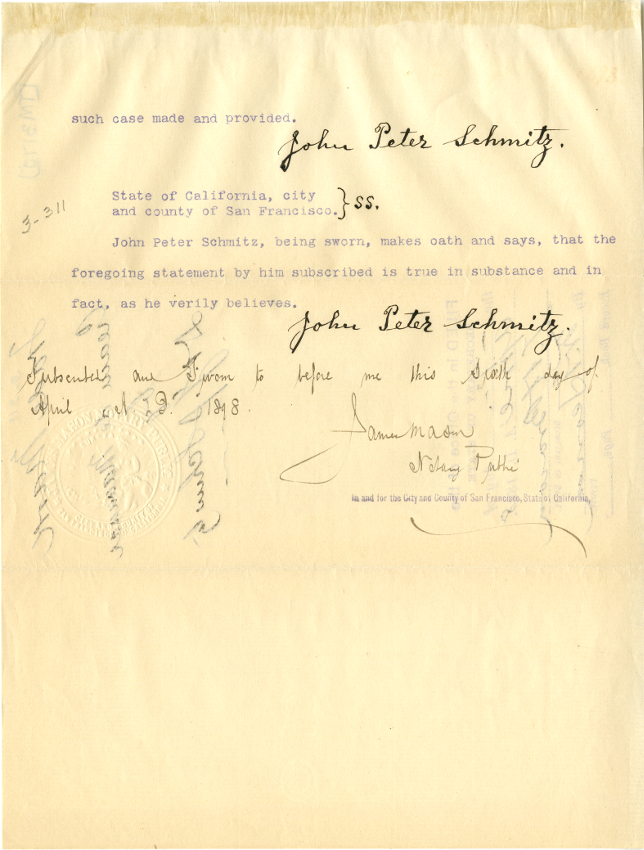 such case made and provided.
John Peter Schmitz.
3-311
State of California, city
and county of San Francisco. } SS.
John Peter Schmitz, being sworn, makes oath and says, that the
foregoing statement by him subscribed is true in substance and in
fact, as he verily believes.
John Peter Schmitz.
Subscribed and Sworn to before me this Sixth day of
April A.D. 1898.
James Mason
Notary Public
In and for the City and County of San Francisco, State of California.